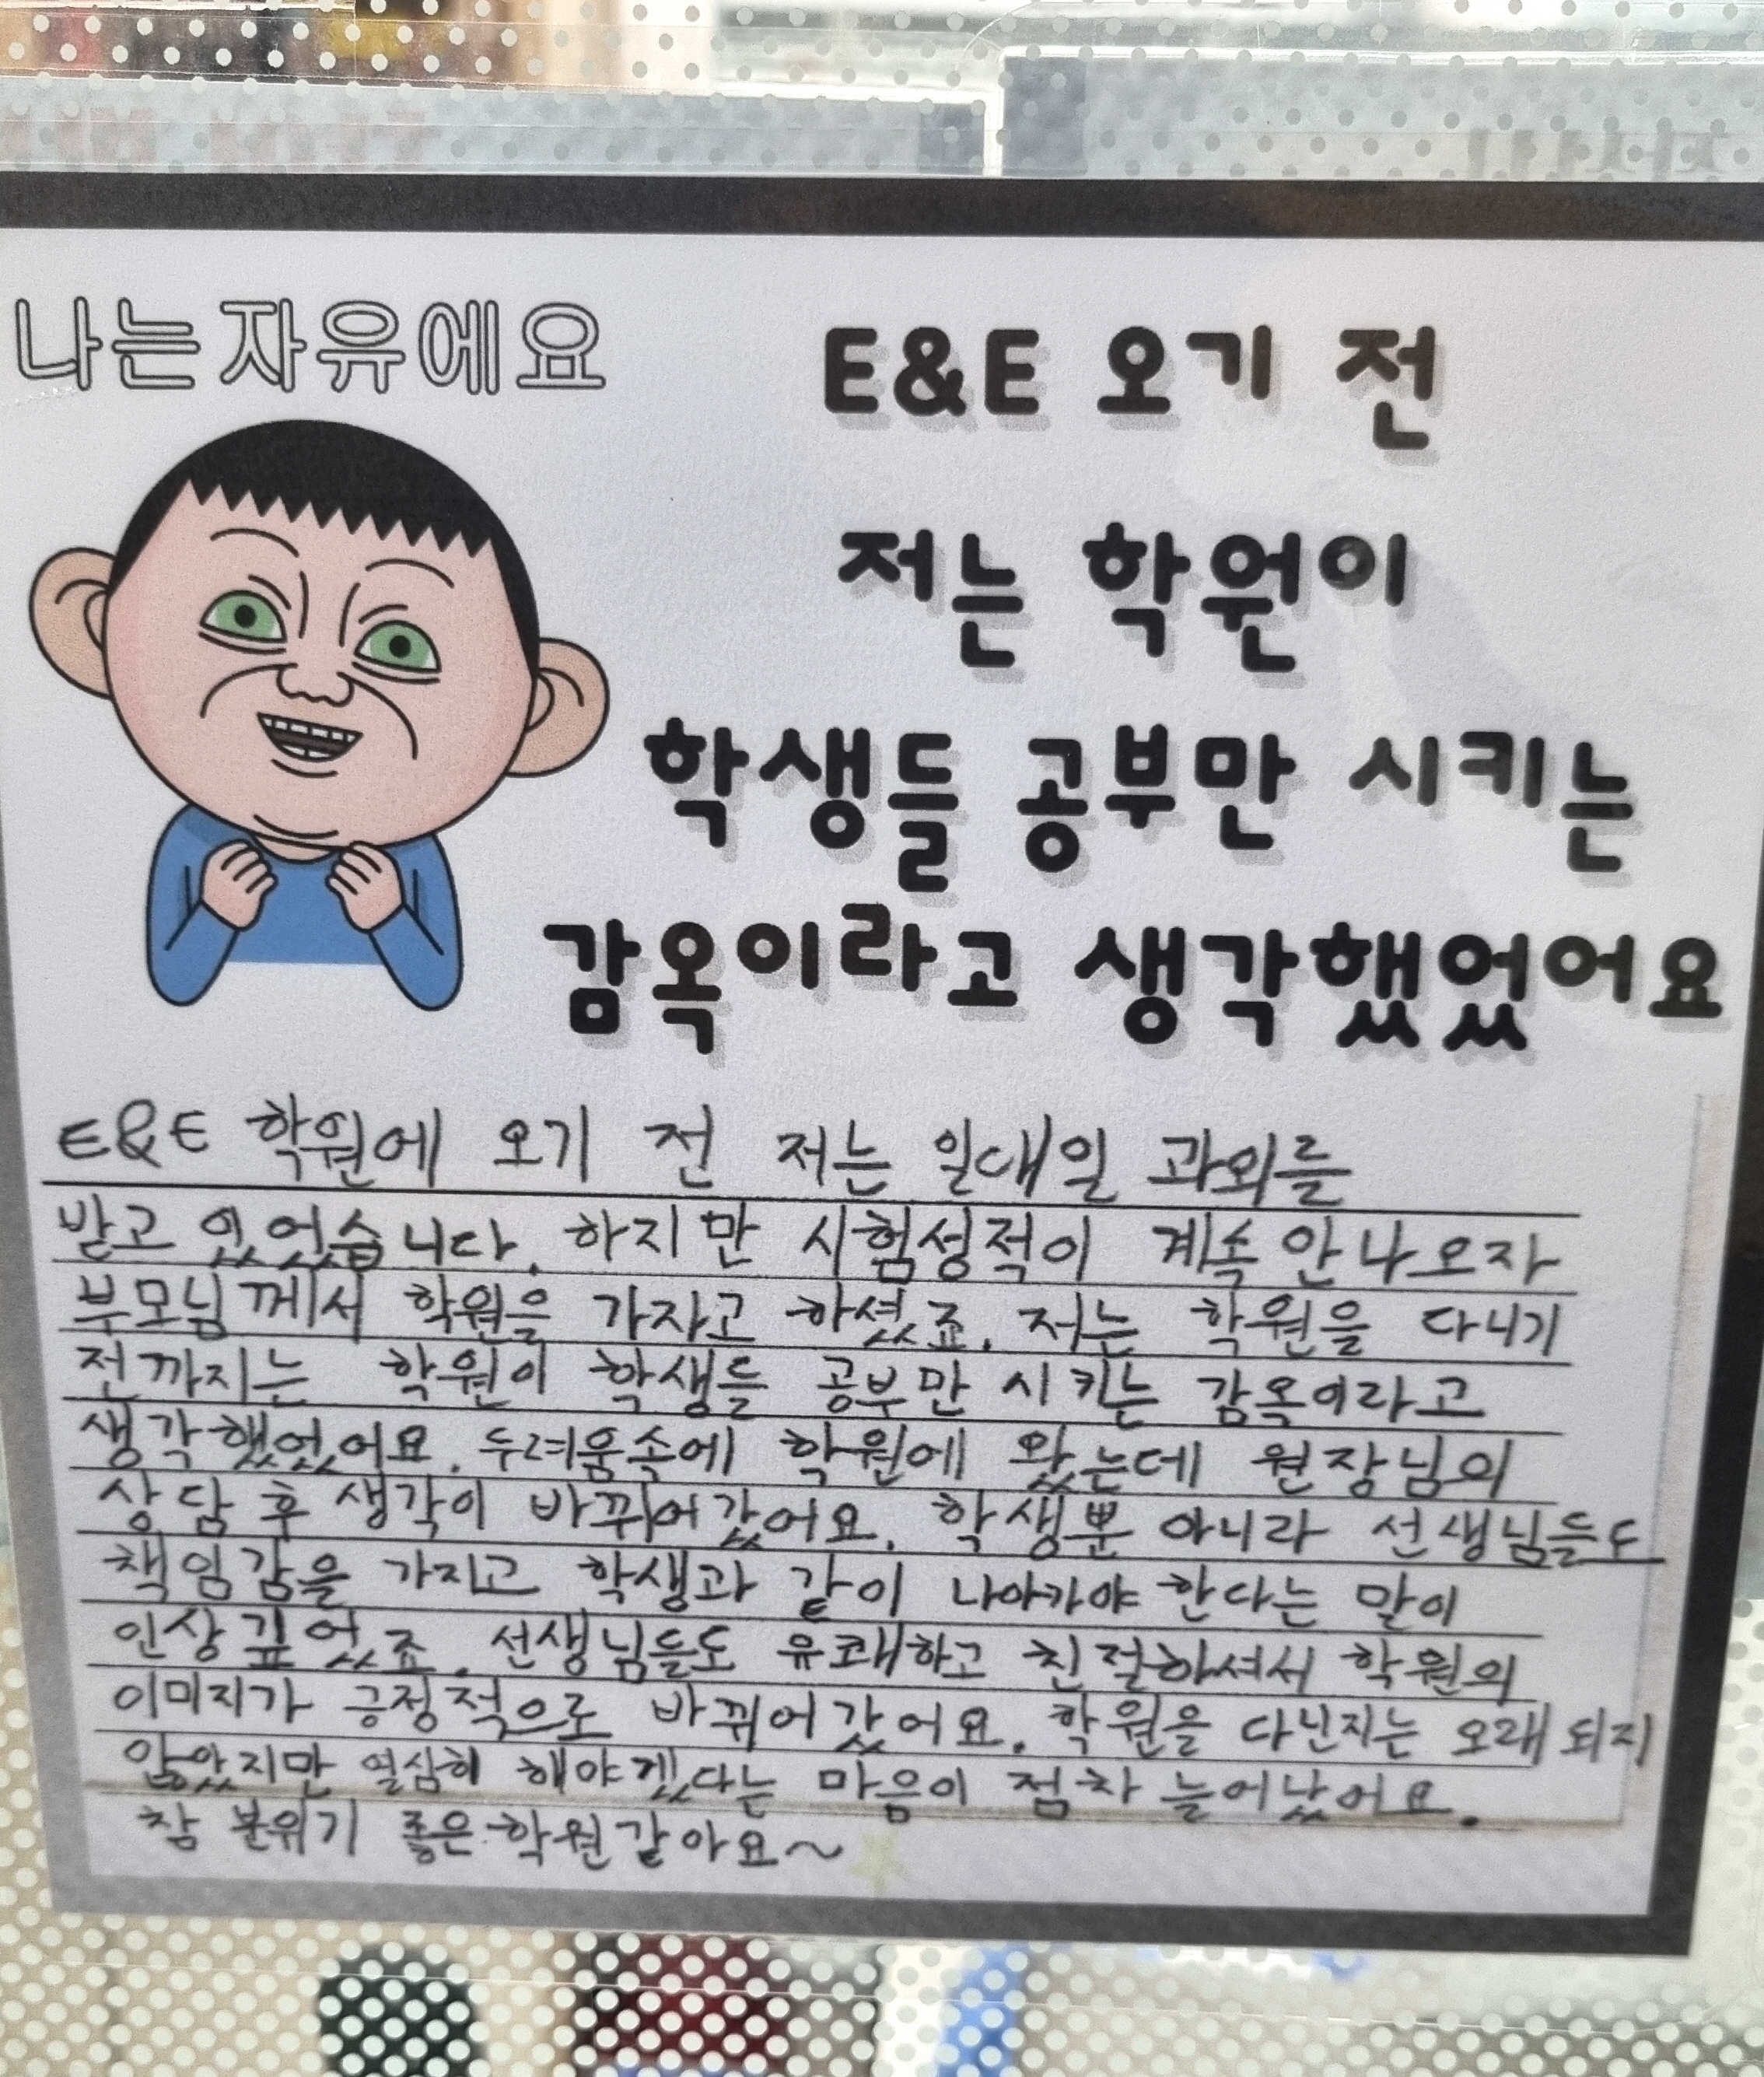 나는자유에요
E&E 오기 전
저는 학원이
학생들 공부만 시키는
감옥이라고 생각했었어요
E&E 학원에 오기 전 저는 일대일 과외를
받고 있었습니다. 하지만 시험성적이 계속 안나오자
부모님께서 학원을 가자고 하셨죠. 저는 학원을 다니기
전까지는 학원이 학생들 공부만 시키는 감옥이라고
생각했었어요. 두려움속에 학원에 왔는데 원장님의
상담 후 생각이 바뀌어갔어요. 학생뿐 아니라 선생님들도
책임감을 가지고 학생과 같이 나아가야 한다는 말이
인상깊었죠. 선생님들도 유쾌하고 친절하셔서 학원의
이미지가 긍정적으로 바뀌어갔어요. 학원을 다닌지는 오래되지
않았지만 열심히 해야겠다는 마음이 점차 늘어났어요.
참 분위기 좋은 학원같아요~